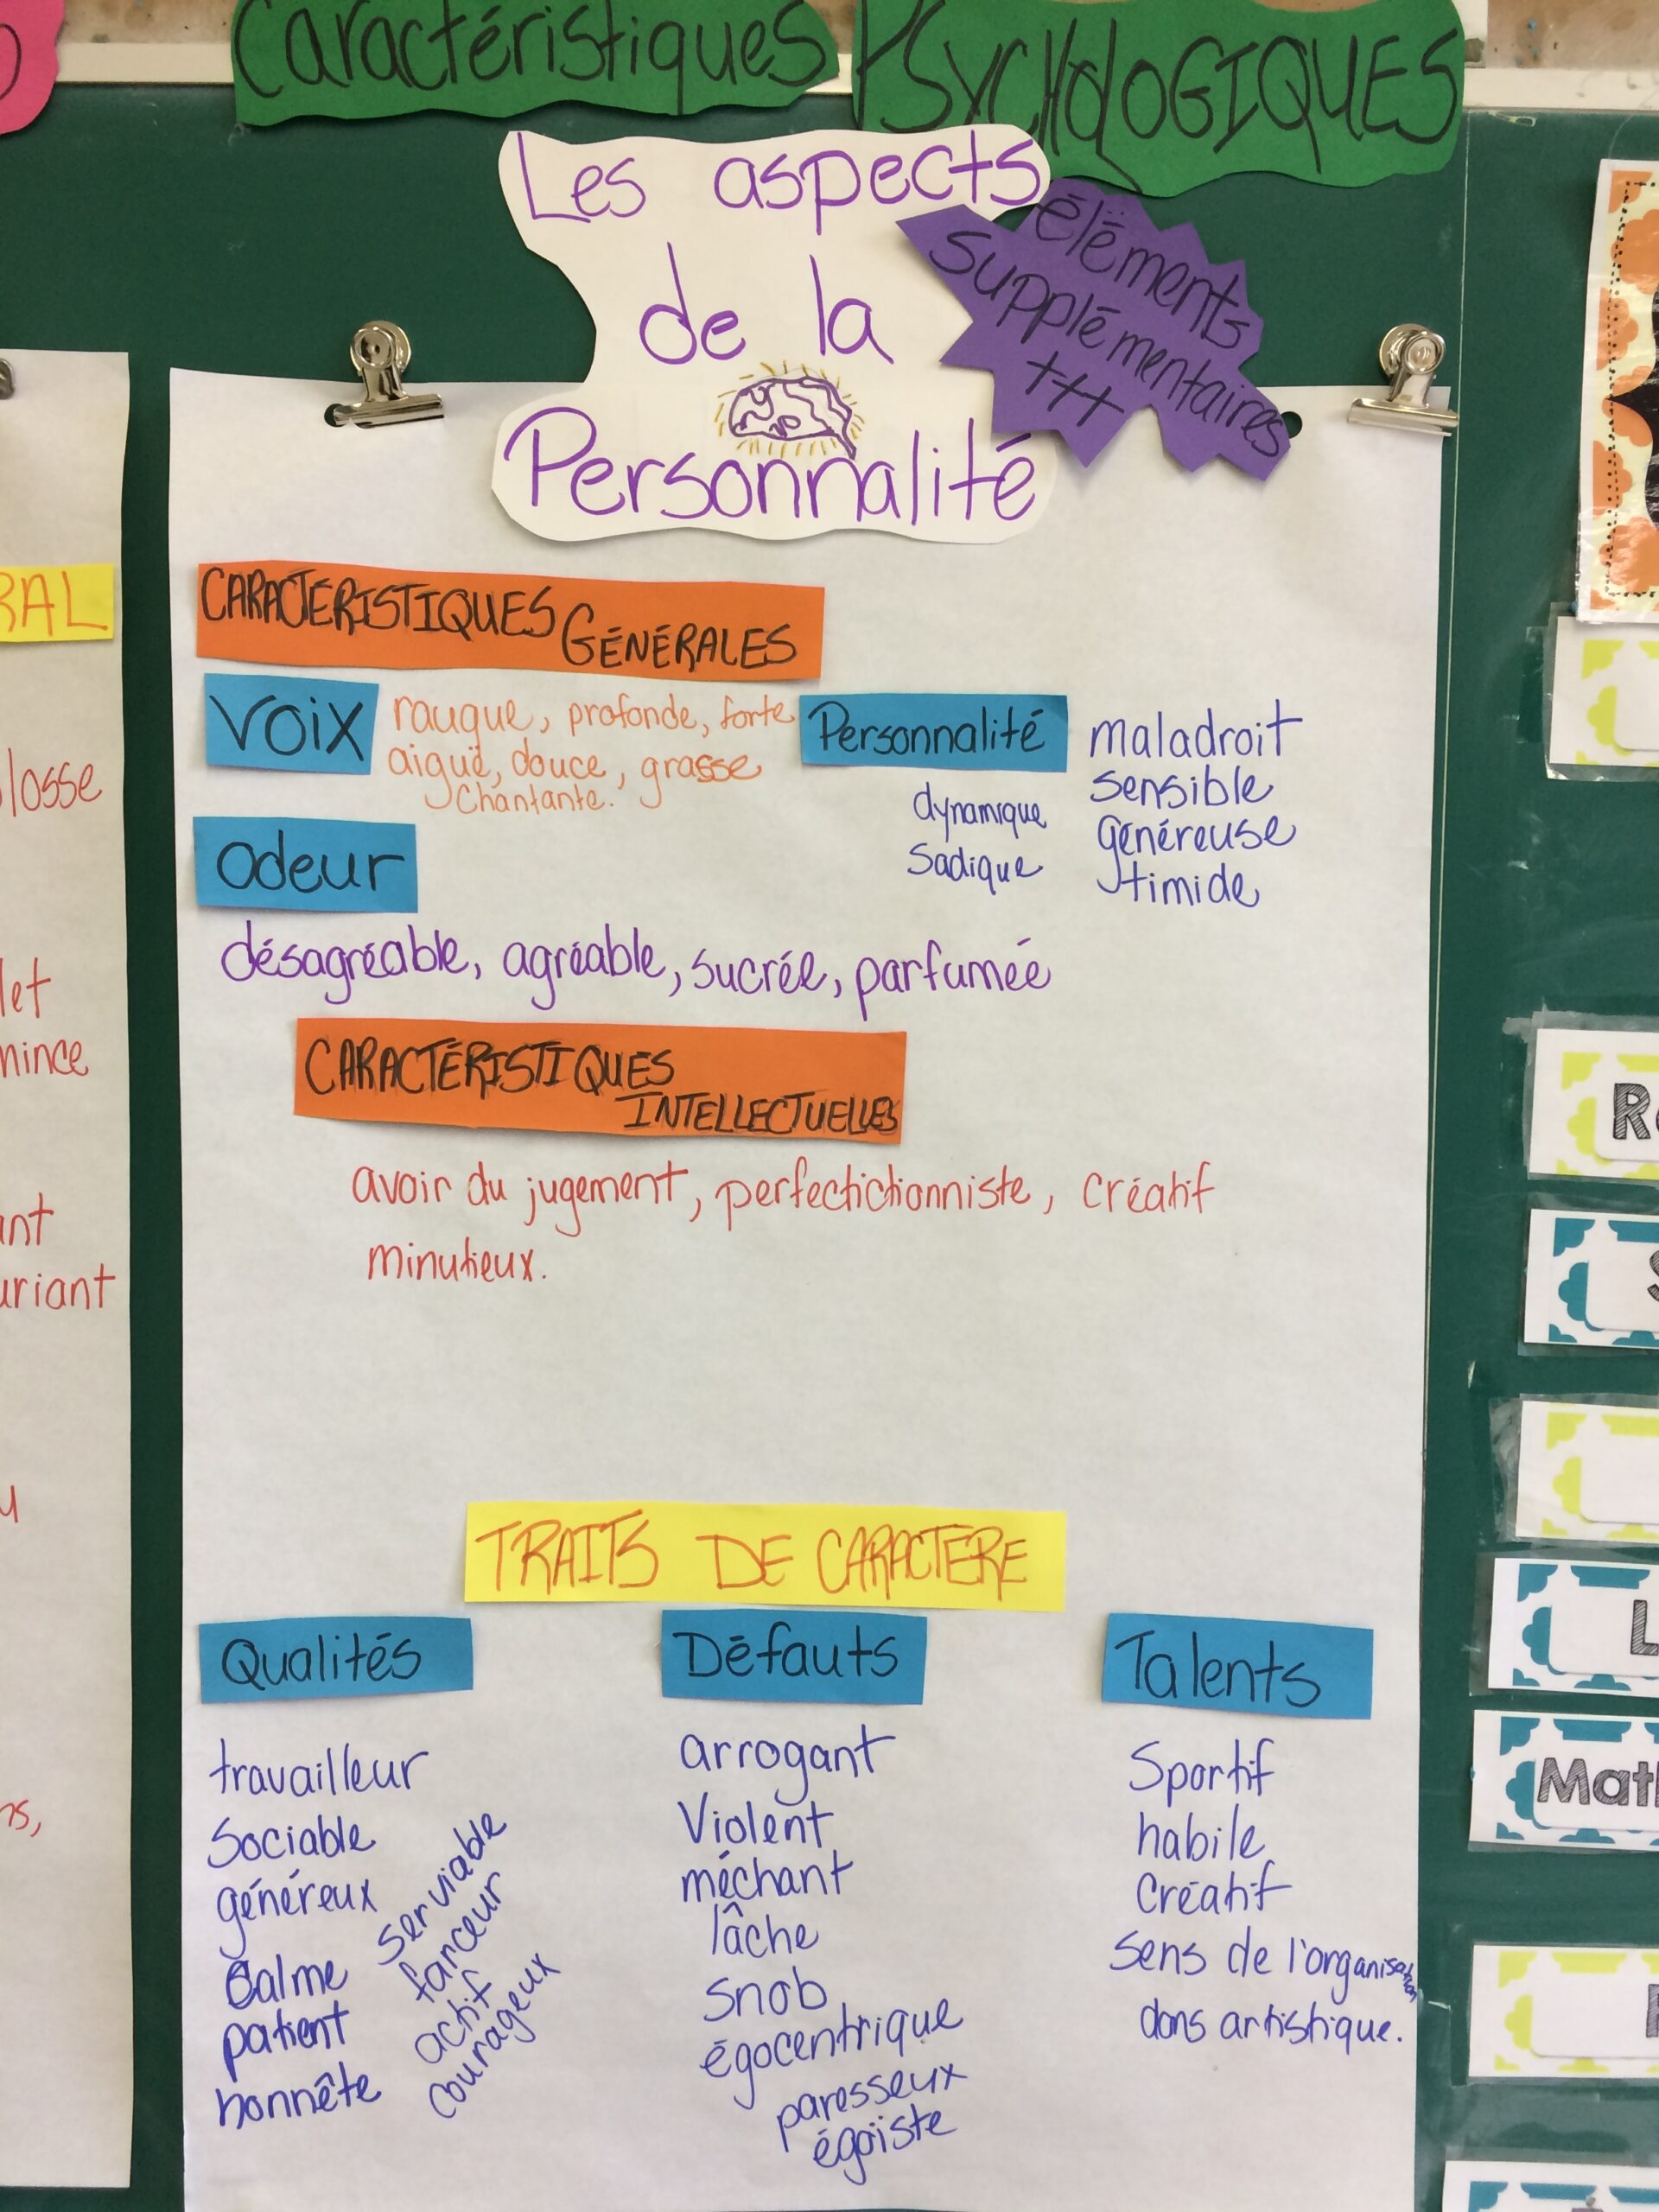 Caractéristiques PSYCHOLOGIQUES
Les aspects
de la
Personnalité
éléments
supplémentaires
+++
CARACTÉRISTIQUES
GÉNÉRALES
Voix
rauque, profonde, forte
aiguë, douce, grasse
Chantante.
Personnalité
dynamique
Sadique
maladroit
sensible
généreuse
timide
Odeur
désagréable, agréable, sucrée, parfumée
CARACTÉRISTIQUES
INTELLECTUELLES
avoir du jugement, perfectictionniste, créatif
minutieux.
TRAITS DE CARACTERE
Qualités
travailleur
Sociable
généreux
Calme
patient
honnête
serviable
farceur
actif
courageux
Défauts
arrogant
Violent
méchant
lâche
snob
égocentrique
paresseux
égoïste
Talents
Sportif
habile
Créatif
sens de l'organisation
dons artistique.
RAL
losse
let
mince
ant
uriant
u
ns,
R
S
L
Mat